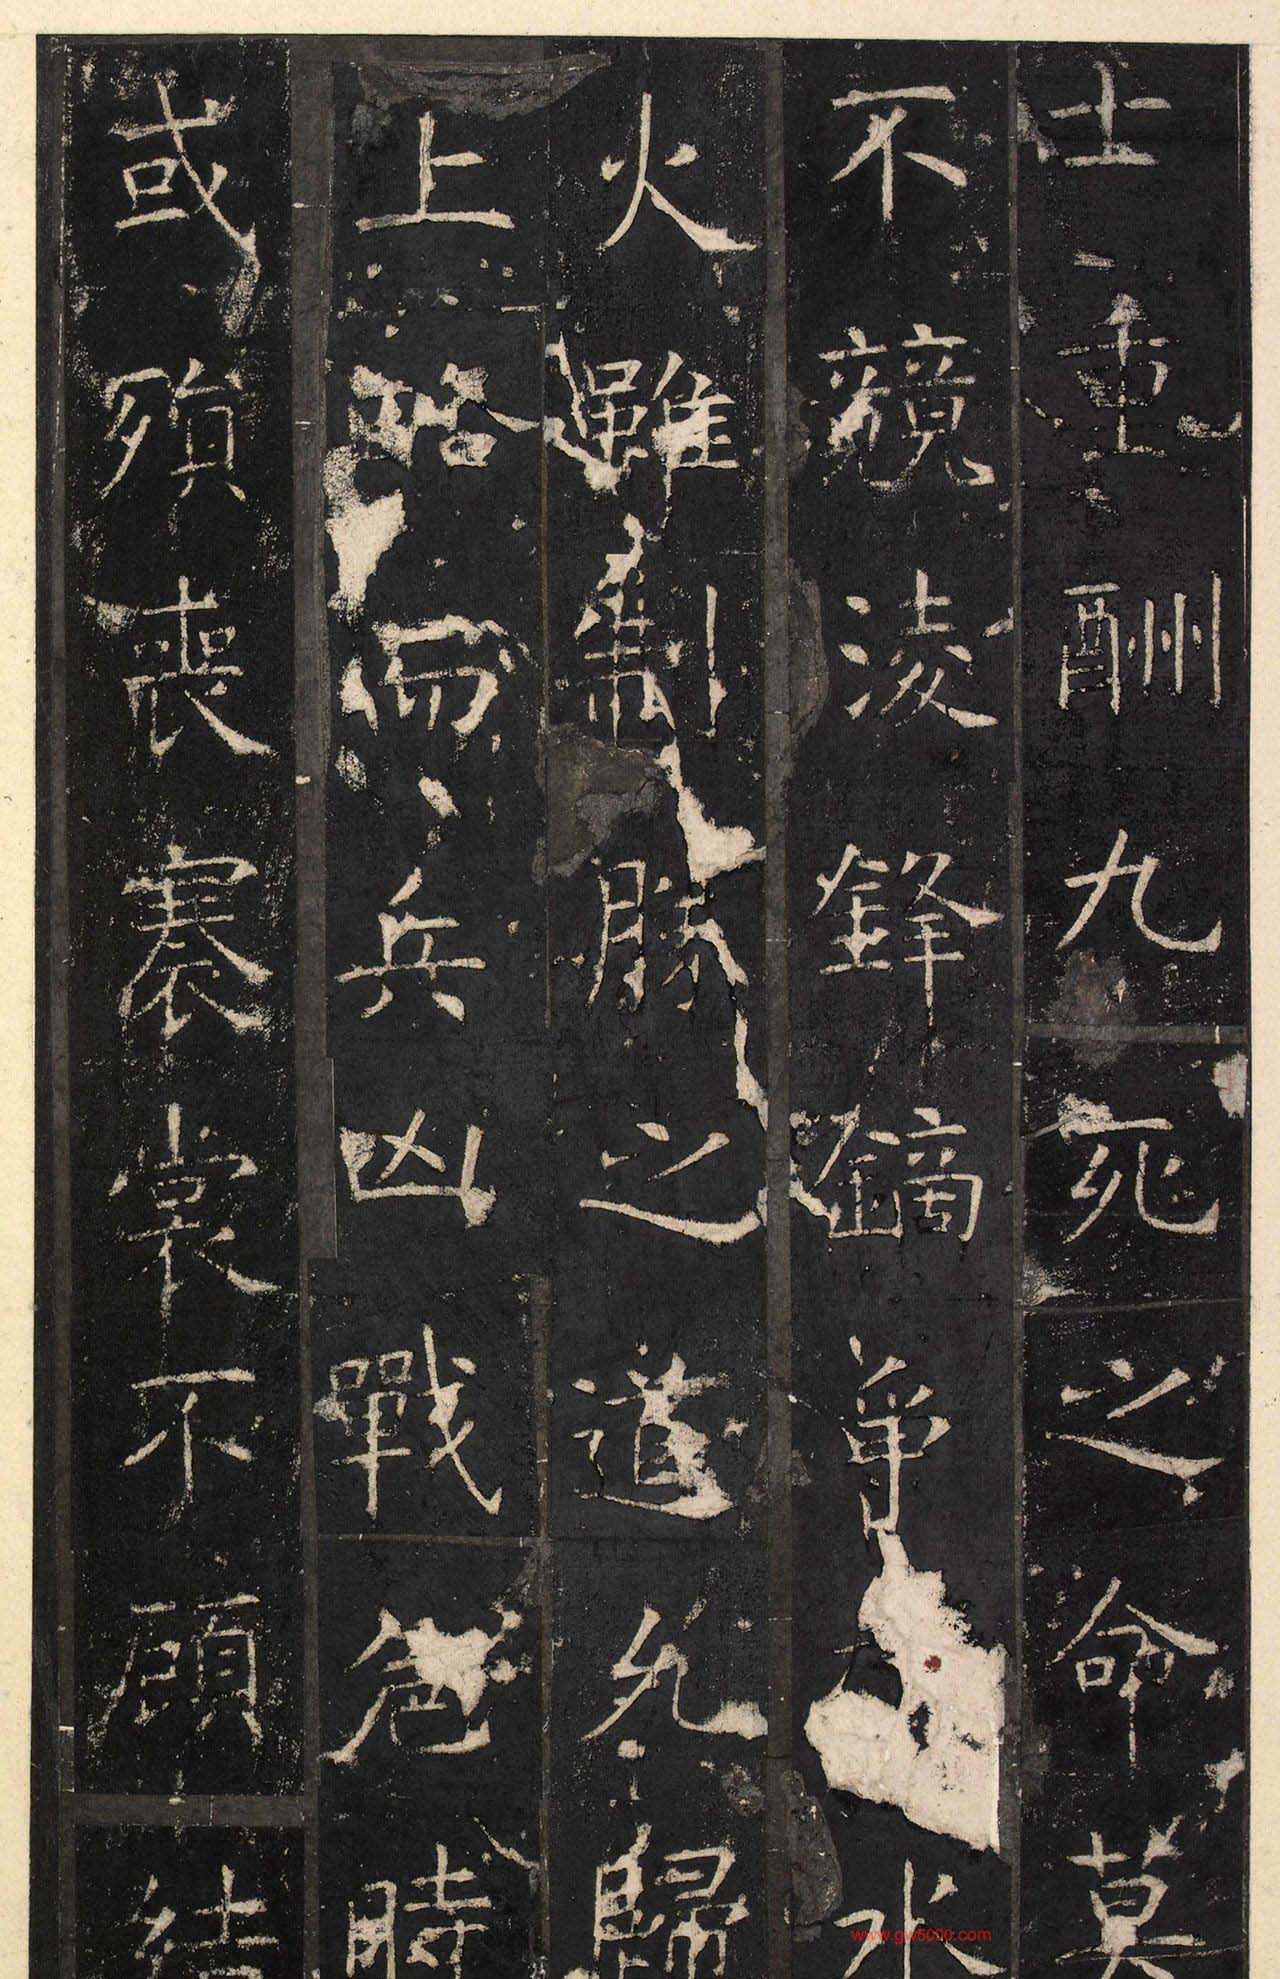 士重酬九死之命莫
不競淩鋒鏑爭水
火雖制勝之道允歸
上略而兵凶戰危時
或殞喪褰裳不顧結
www.gw5000.com